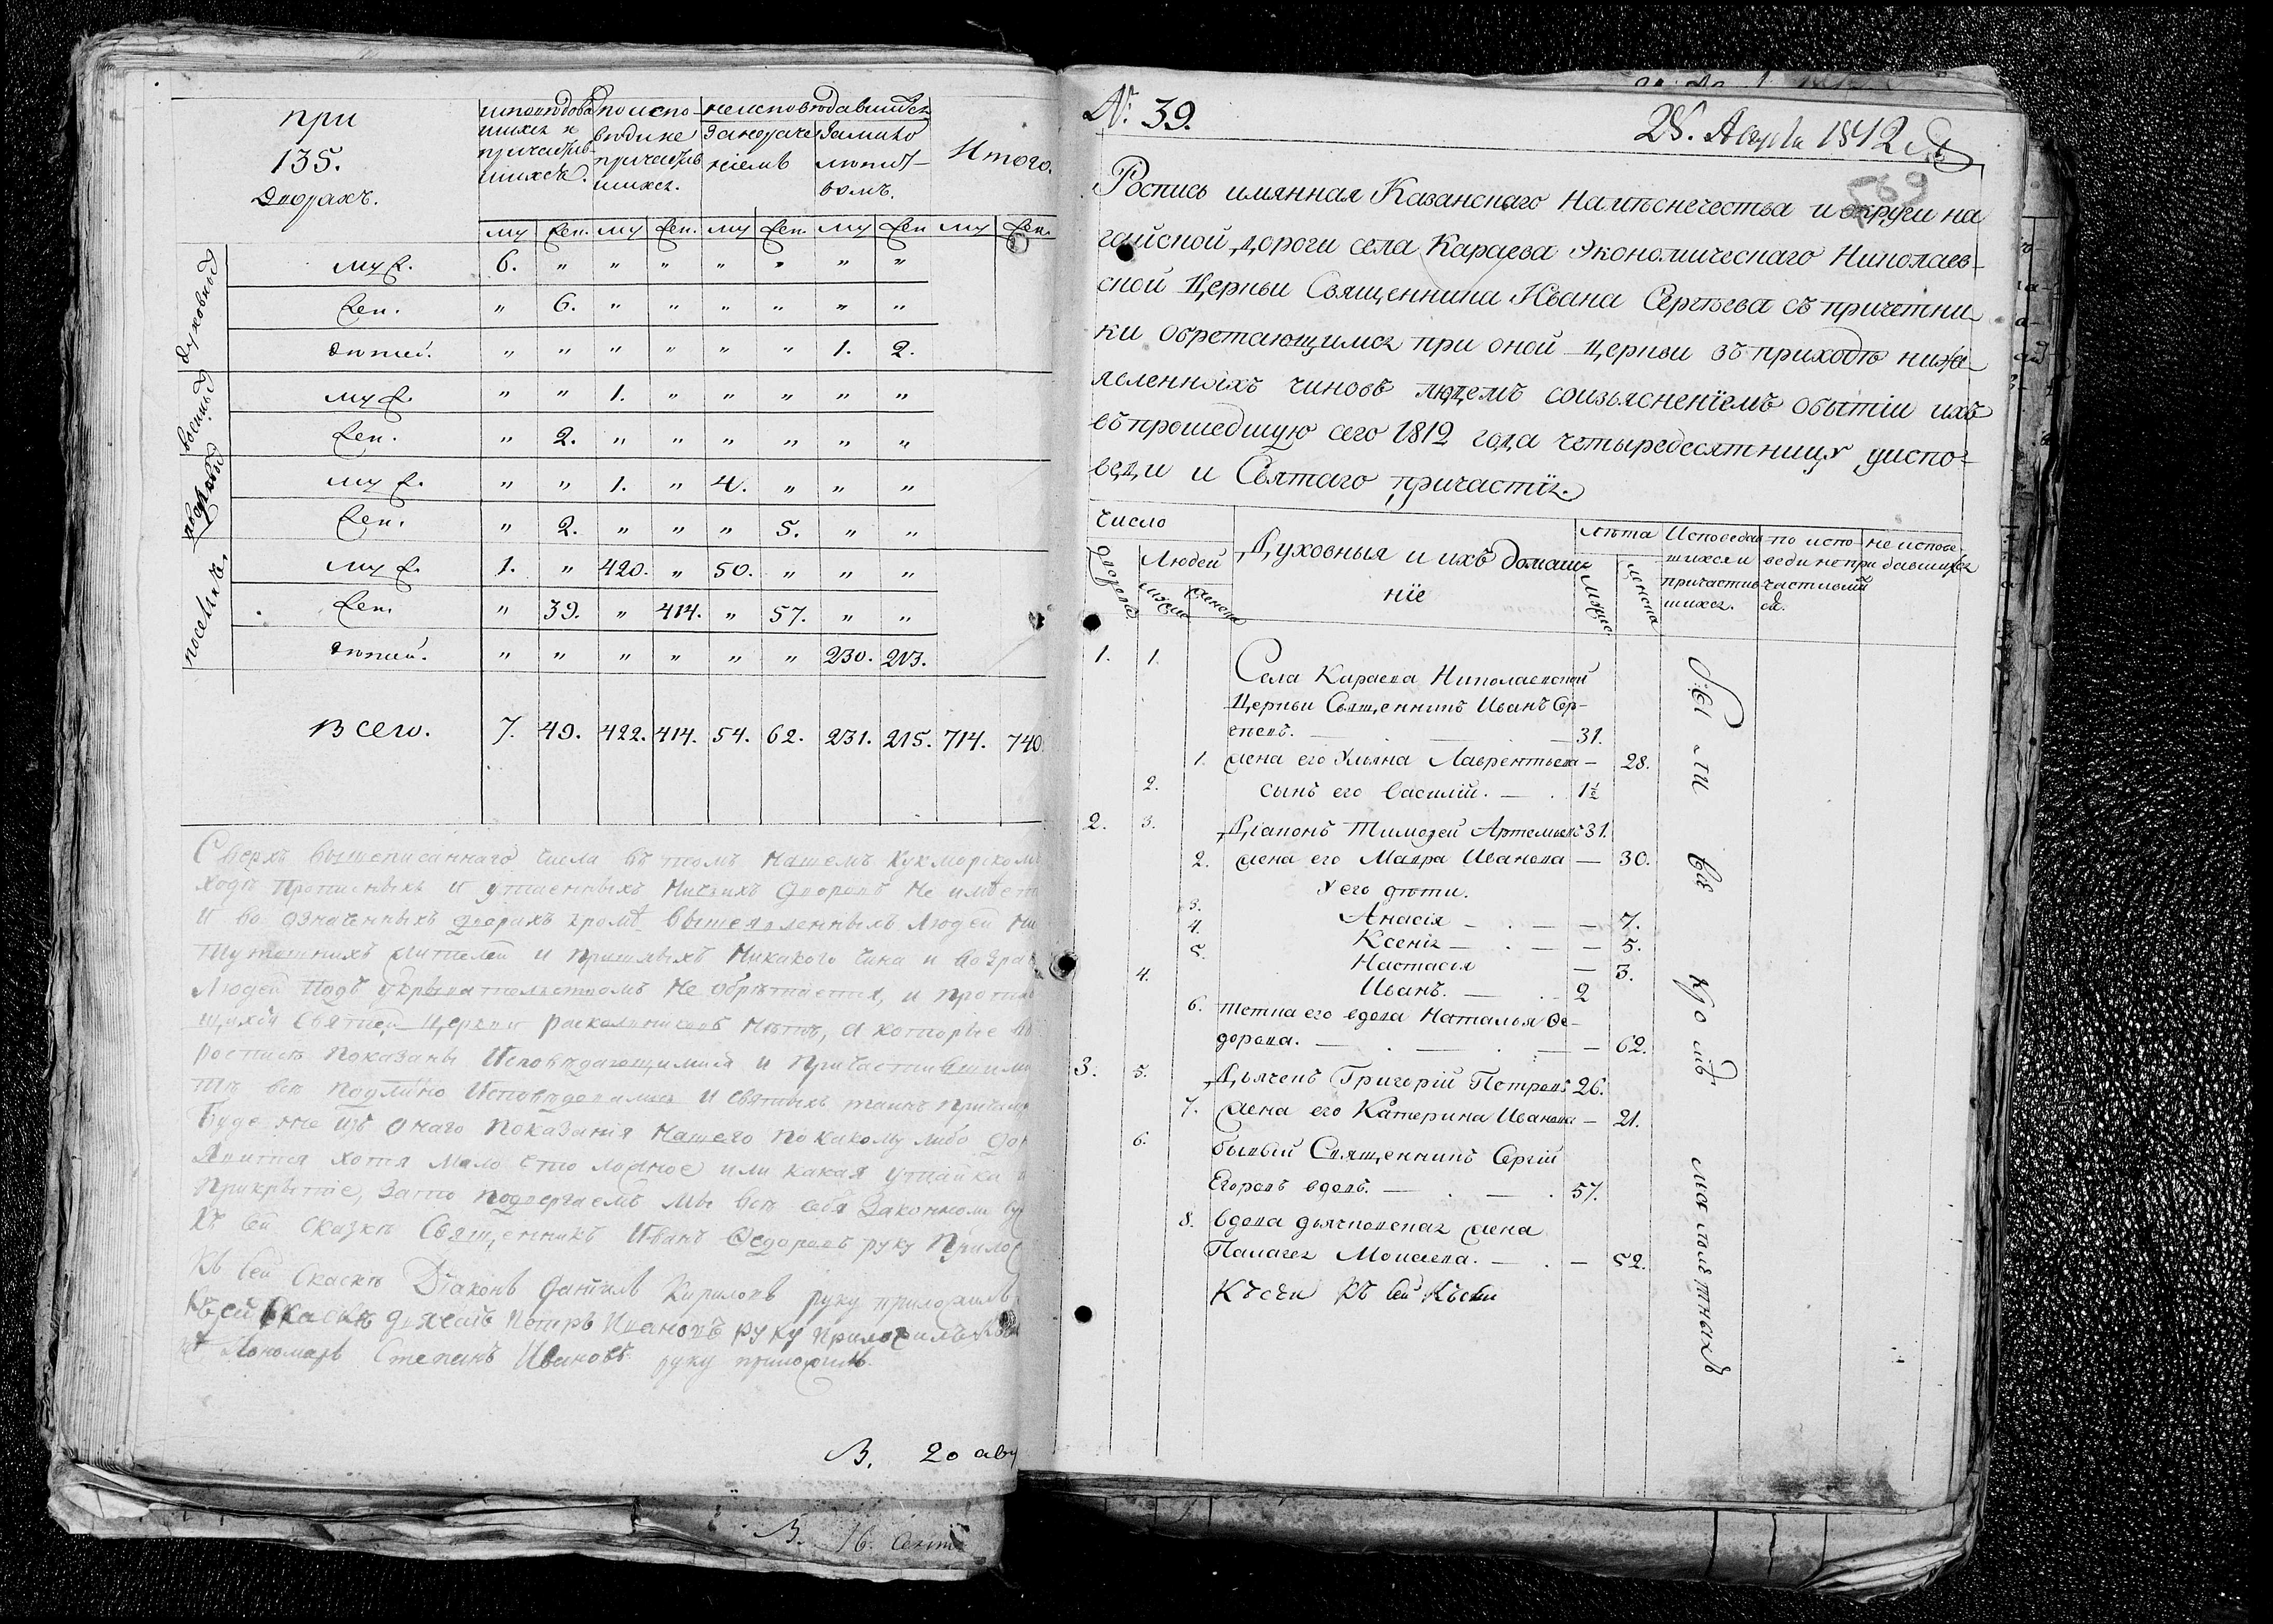 при
135.
дворахъ.
исповѣдова
шихся и
причастив-
шихся.
по испо-
вѣди не
причастив
шихся.
неисповѣдавшихся
за нераче
нiемъ
за мало
лѣтст-
вомъ.
Итого.
му жен. му жен. му жен. му жен му жен.
духовныхъ
муж. 6. " " " " " " "
жен. " 6. " " " " " "
дѣтей. " " " " " " 1. 2.
военныхъ
муж. " " 1. " " " " "
жен. " 2. " " " " " "
муж. " " 1. " 4. " " "
жен. " 2. " " " 5. " "
поселянъ.
муж. 1. " 420. " 50. " " "
жен. " 39. " 414. " 57. " "
дѣтей. " " " " " " 230. 213.
Всего. 7. 49. 422. 414. 54. 62. 231. 215. 714. 740
Сверхъ вышеписаннаго числа въ томъ нашемъ Кукморскомъ
ходѣ прописныхъ и утаенныхъ ничьихъ дворовъ не имѣет
и во означенныхъ дворахъ кромѣ вышеявленныхъ людей ни
тутошнихъ жителей и пришлыхъ никакого чина и возрас
людей подъ укрывательствомъ не обрѣтается, и против
щихся святей церкви раскольниковъ нѣтъ, а которые въ
росписѣ показаны исповѣдающимися и причастившими
тѣ всѣ подлинно исповѣдовались и святыхъ таинъ прича
буде же изъ онаго показанiя нашего по какому либо до
явится хотя мало что ложное или какая утайка и
прикрытiе, за то подвергаемъ мы всѣ себя законному су
Къ сей сказкѣ Священникъ Иванъ Ѳедоровъ руку прилож
Къ сей скаскѣ Дiаконъ Данiилъ Кириловъ руку приложилъ
Къ сей скаскѣ дьячекъ Петръ Ивановъ руку приложилъ
Пономарь Степанъ Ивановъ руку приложилъ.
В. 20 авг
В. 16. сентя
№: 39.
28. Августа 1812
Роспись имянная Казанскаго Намѣснечества и округи на
гайской дороги села Караева Экономическаго Николаев-
ской Церкьви Священника Ивана Сергѣева съ причетни
ки обретающимся при оной церкьви въ приходѣ ниже
явленныхъ чиновъ людемъ соизьясненiемъ обытiи ихъ
въ прошедшую сего 1812 года четыредесятницу уиспо-
веди и Святаго причастiя.
число
дворовъ
Людей
мужеска
женска
Духовныя и ихъ домаш
нiе
лѣта
мужска
женска
Исповедав
шихся и
причастив
шихся.
по испо-
веди непри
частивши
ся.
не испове
давшихся
1. 1. Села Караева Николаевской
Церкьви Священникъ Иванъ Сер-
геевъ. — 31.
1. жена его Ульяна Лаврентьева — 28.
2. сынъ его Василiй. — 1½
2. 3. Дiаконъ Тимоѳей Артемьевъ 31.
2. жена его Мавра Иванова — 30.
У его дѣти.
3. Анасiя — 7.
4. Ксенiя — 5.
5. Настасiя — 3.
4. Иванъ. — 2
6. тетка его вдова Наталья Ѳе-
дорова. — 62.
3. 5. Дьячекъ Григорiй Петровъ 26.
7. жена его Катерина Иванова — 21.
6. бывый Священникъ Сергiй
Егоровъ вдовъ. — 57.
8. вдова дьячковская жена
Палагея Моисеева. — 52.
Къ сей
Были все кромѣ малолѣтныхъ